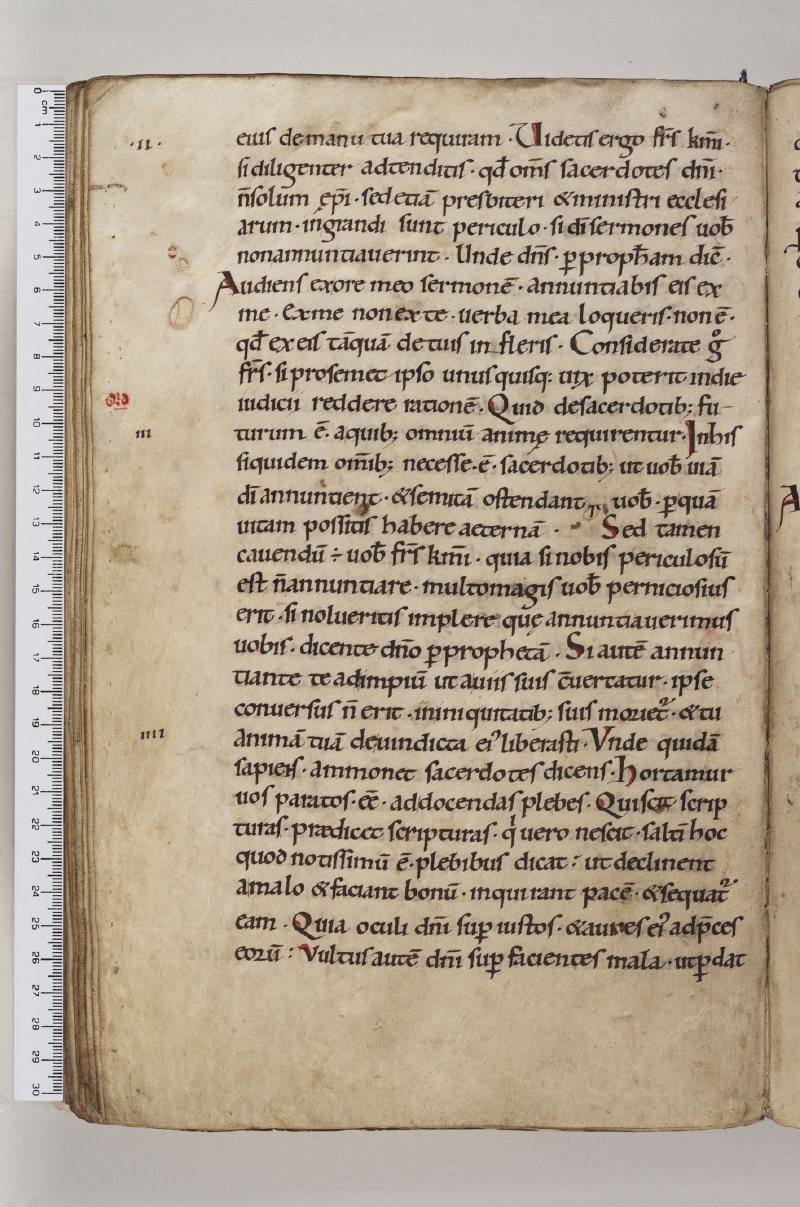 eius demanu tua requiram · Uidetis ergo fr̄s km̄i ·
·ii· si diligenter adtenditis · qđ om̄s sacerdotes dn̄i ·
n̄solum ep̄i · sed etiā presbiteri & ministri ecclesi
arum · ingrandi sunt periculo · si dī sermones uob̄
nonannuntiauerint · Unde dn̄s · ꝑ proph̄am dic̄ ·
Audiens exore meo sermonē · annuntiabis eis ex
me · Ex me non ex te · uerba mea loqueris · non ē ·
qđ ex eis tāquā de tuis infleris · Considerate gͦ
fr̄s · si prosemet ipso unusquisq: uix poterit indie
iudicii reddere rationē · Quid desacerdotib; fu-
iii turum ē · aquib; omniū animę requirentur · Inhis
siquidem om̄ib; necesse · ē · sacerdotib; ut uob̄ uiā
dī annuntient · & semitā ostendant uob̄ · ꝑquā
uitam possitis habere aeternā · Sed tamen
cauendū ÷ uob̄ fr̄s km̄i · quia sinobis periculosū
est n̄annuntiare · multomagis uob̄ perniciosius
erit · si nolueritis implere quę annuntiauerimus
uobis · dicente dn̄o ꝑ prophetā · Si autē annun
tiante te adimpiū ut auiis suis c̄uertatur · ipse
conuersus n̄ erit · ininiquitatib; suis morieť · & tu
iiii animā tuā deuindicta ei' liberasti · Vnde quidā
sapiens · ammonet sacerdotes dicens · Hortamur
uos paratos · eē · addocendas plebes · Qui scit scrip
turas · prædicet scripturas · qi uero nescit · saltī hoc
quod notissimū ē · plebibus dicat : ut declinent
amalo & faciant bonū · inquirant pacē · & sequať
eam · Quia oculi dn̄i sup̄ iustos · & aures ei' adp̄ces
eorū : Vultus autē dn̄i sup̄ facientes mala · utꝑdat